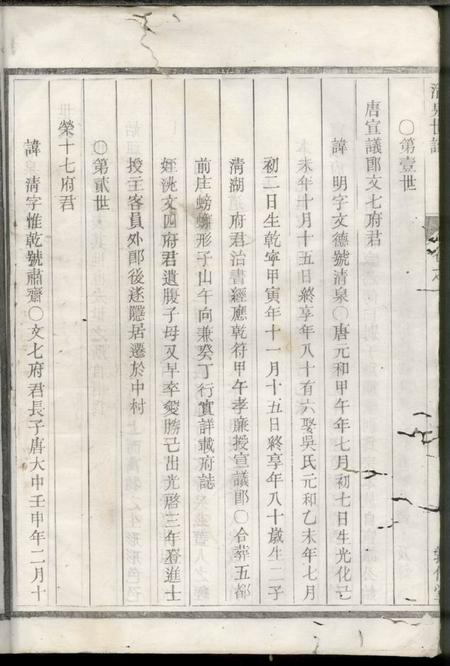 清泉世譜
〇第壹世
唐宣議郎文七府君
諱 明字文德號清泉〇唐元和甲午年七月初七日生光化己
未年十月十五日終享年八十有六娶吳氏元和乙未年七月
初二日生乾寧甲寅年十一月十五日終享年八十歲生二子
清湖 府君治書經應乾符甲午孝廉授宣議郎〇合葬五都
前庄螃蠏形子山午向兼癸丁行實詳載府誌
姪洮文四府君遺腹子母又早卒愛勝己出光啓三年登進士
授主客員外郎後遂隱居遷於中村
〇第貳世
榮十七府君
諱 清字惟乾號肅齋〇文七府君長子唐大中壬申年二月十